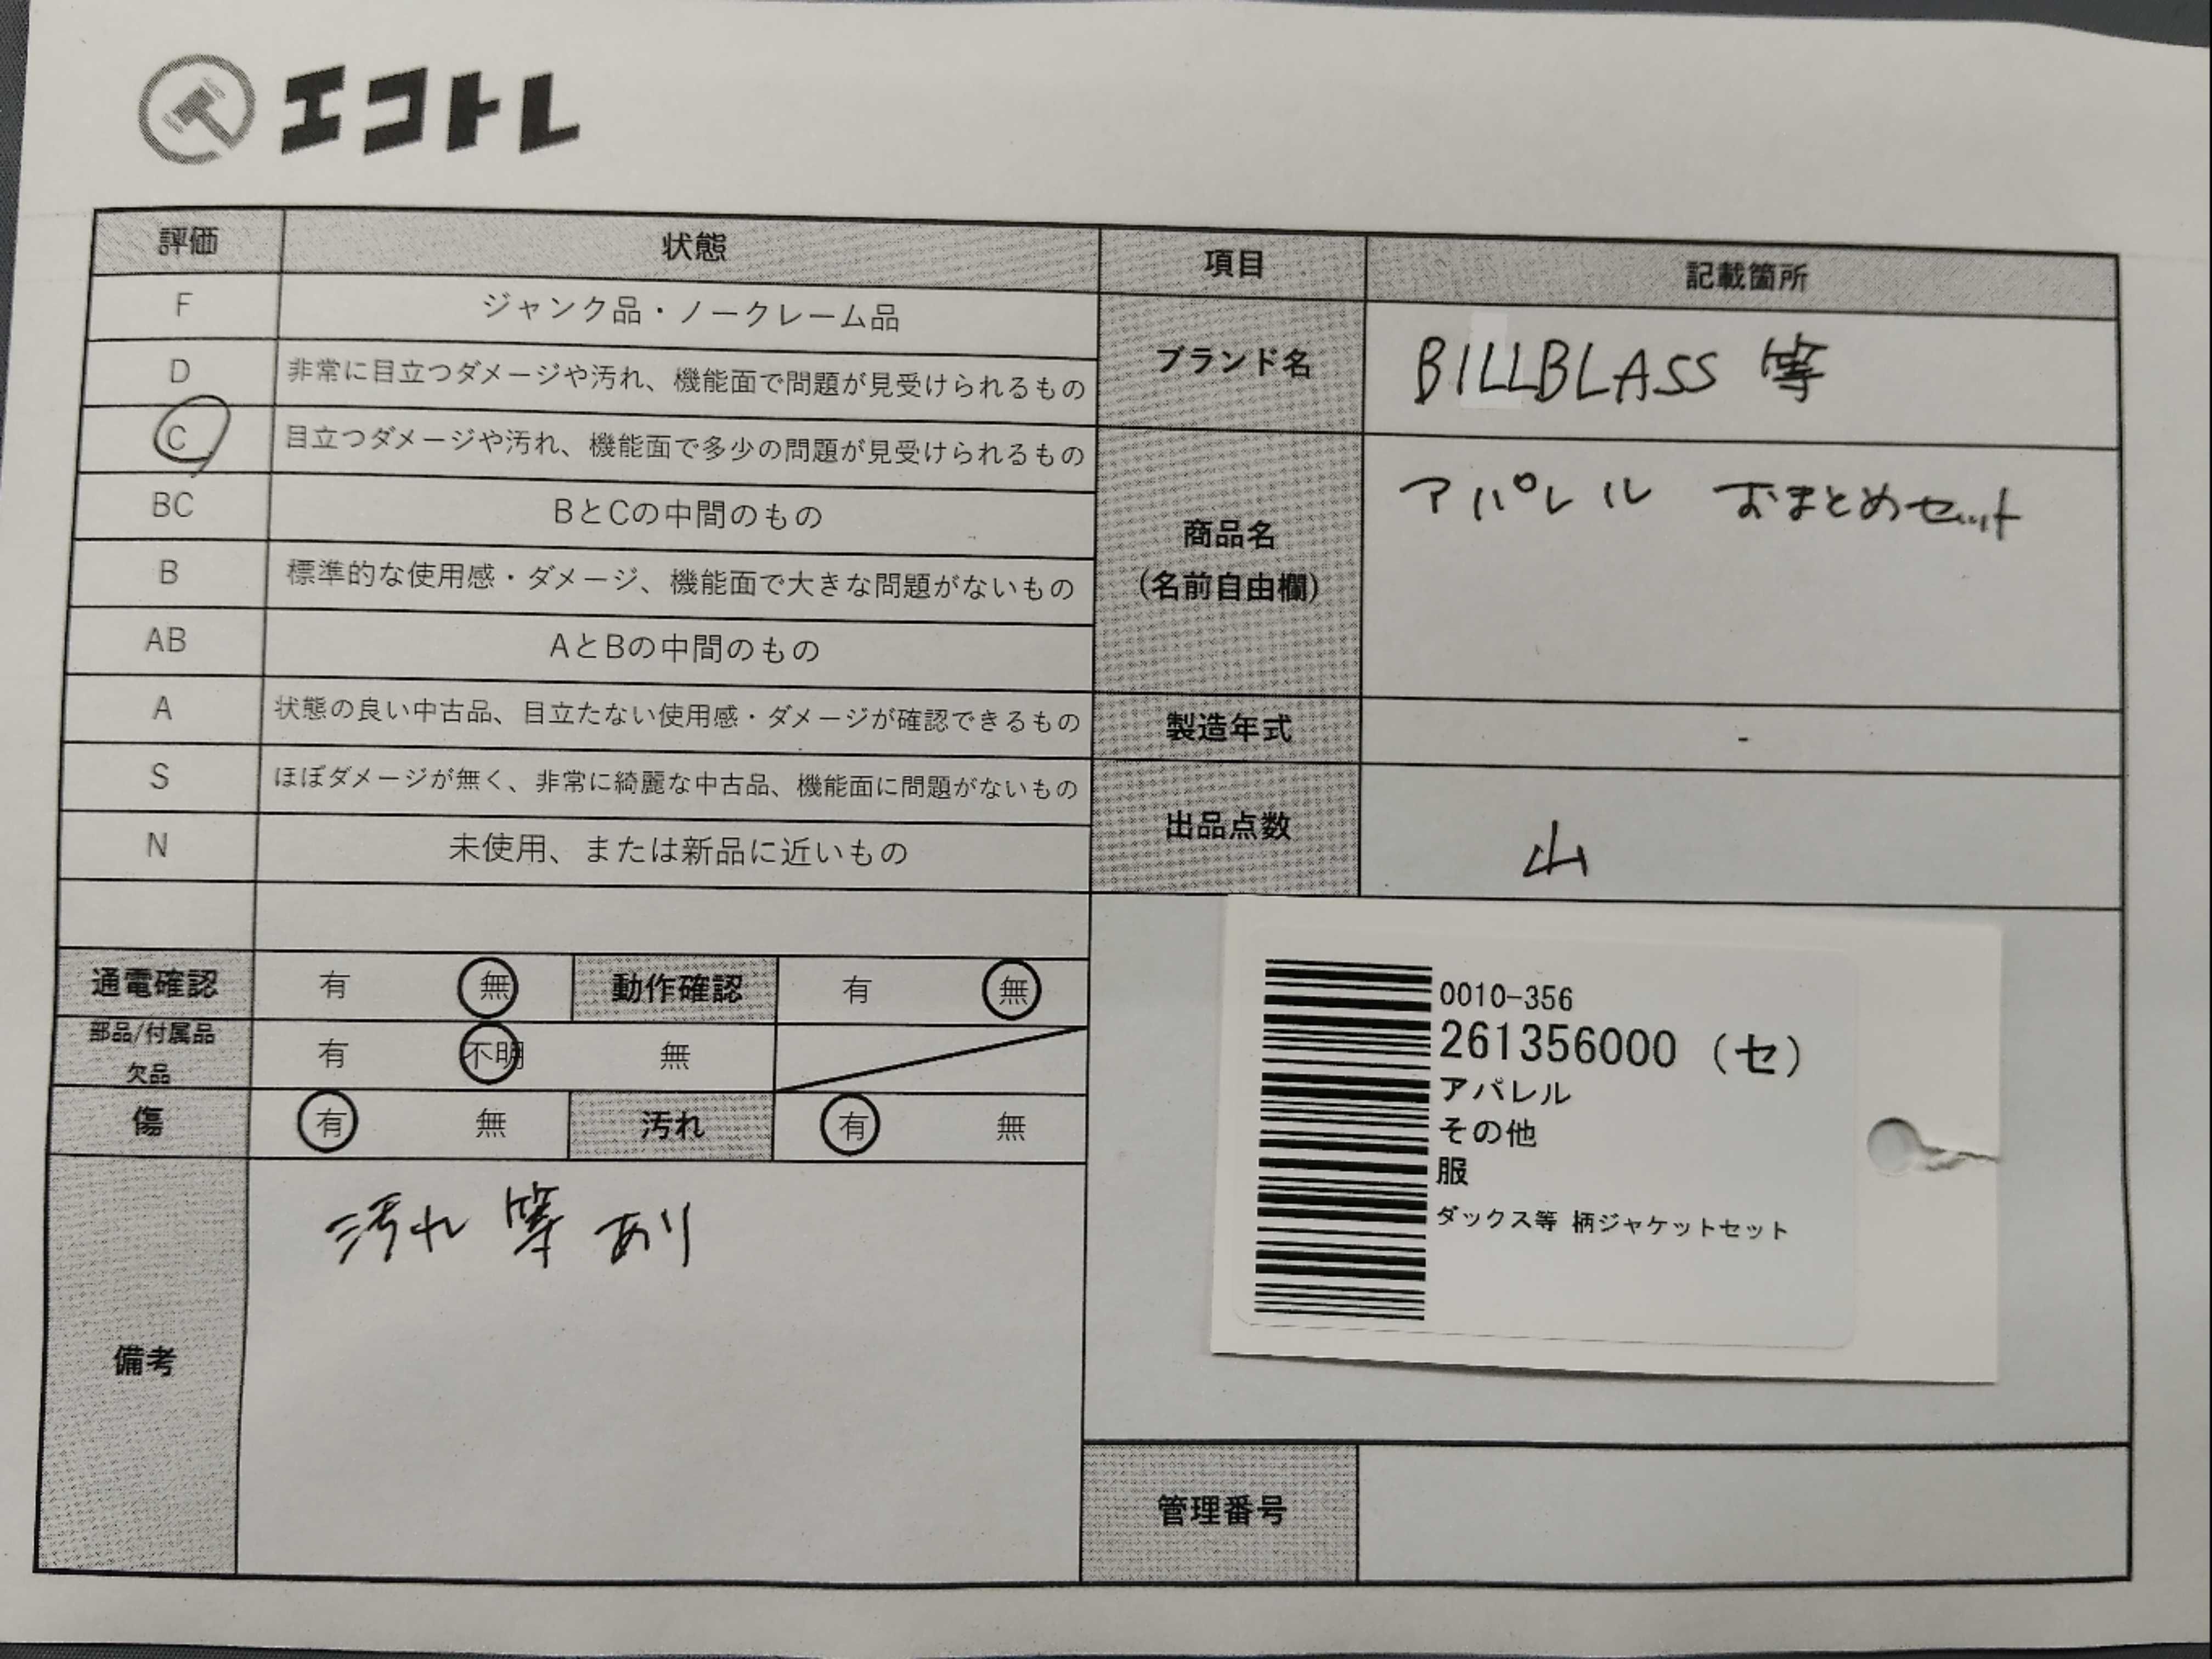 エコトレ
評価 状態 項目 記載箇所
F ジャンク品・ノークレーム品
D 非常に目立つダメージや汚れ、機能面で問題が見受けられるもの
C 目立つダメージや汚れ、機能面で多少の問題が見受けられるもの
BC BとCの中間のもの
B 標準的な使用感・ダメージ、機能面で大きな問題がないもの
AB AとBの中間のもの
A 状態の良い中古品、目立たない使用感・ダメージが確認できるもの
S ほぼダメージが無く、非常に綺麗な中古品、機能面に問題がないもの
N 未使用、または新品に近いもの
ブランド名 BILLBLASS 等
商品名
(名前自由欄)
アパレル おまとめセット
製造年式 -
出品点数 山
通電確認 有 無 動作確認 有 無
部品/付属品
欠品
有 不明 無
傷 有 無 汚れ 有 無
備考 汚れ 等 あり
0010-356
261356000 (セ)
アパレル
その他
服
ダックス等 柄ジャケットセット
管理番号